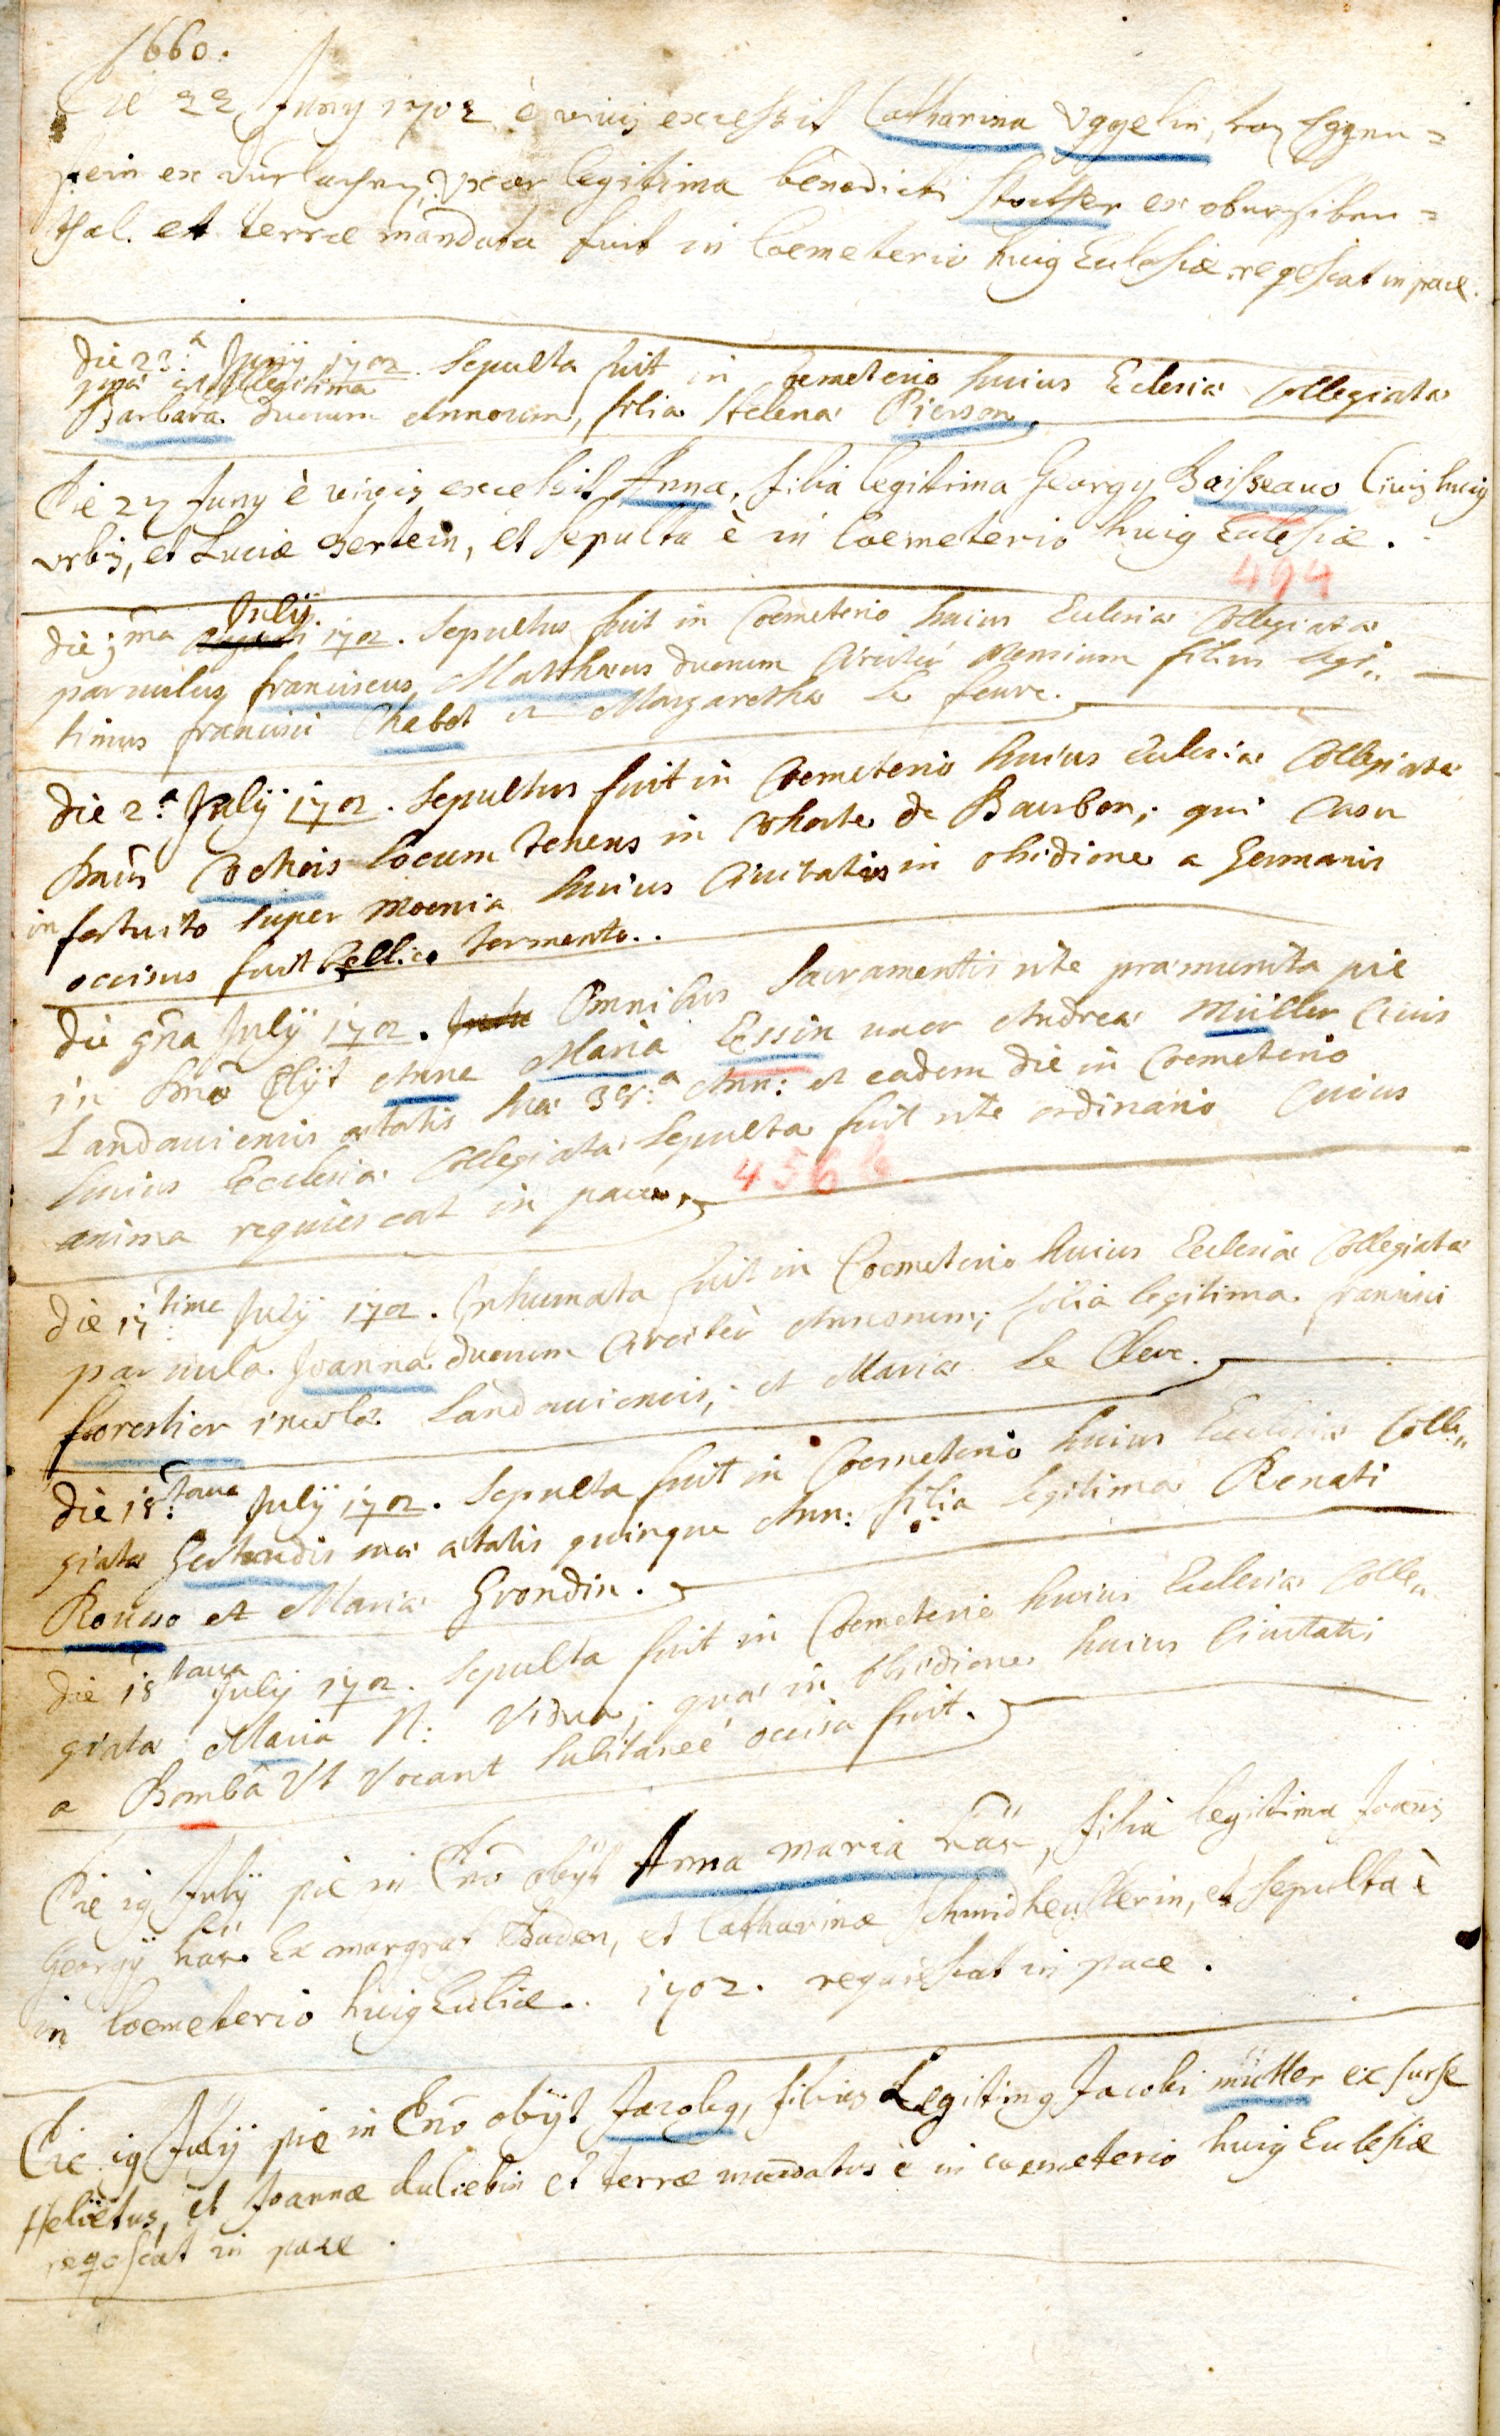 1660.
Die 22 Juny 1702 è vivis excessit Catharina Uggelin, von Eggen=
stein ex durlachen, Uxor legitima benedicti Stoltser ex obersiben=
thal. et terræ mandata fuit in Coemeterio huig Eclesiæ reqescat in pace.
Die 22.a Junij 1702. Sepulta fuit in Coemeterio huius Eclesiæ Collegiatæ
legitima
Barbara duorum Annorum, filia Helenæ Pierson
Die 27 Juny è vivis excessit Anna, filia legitima Georgy Baisseauo Civis huig
vrbis, et Luciæ Oertein, et sepulta è in Coemeterio huig Eclesiæ.
494
July
Die 1ma 1702. Sepultus fuit in Coemeterio huius Eclesiæ Collegiatæ
parvulus franciscus Matthæus duorum Circiter Mensium filius legi„
timus francisci Chabot et Margarethæ le feuvre.
Die 2.a Julÿ 1702. Sepultus fuit in Coemeterio huius Eclesiæ Collegiatæ
Dnus Cochois Locum tenens in Cohorte de Baurbon; qui Casu
in fortuito super moenia huius Civitatis in obsidione a Germanis
occisus fuit bellico tormento..
Die 9na Julÿ 1702. Omnibus Sacramentis rite præmunita pie
in Dnō Obÿt Anne Maria Essin uxor Andreæ Müller Civis
Landaviensis ætatis suæ 38.a Ann: et eadem die in Coemeterio
huius Ecclesiæ Collegiatæ Sepulta fuit rite ordinario Cuius
anima requiescat in pace.
4566
Die 17time Julÿ 1702. Inhumata fuit in Coemeterio huius Ecclesiæ Collegiatæ
parvula Joanna duorum Circiter Annorum; filia legitima francisci
florestier incolæ Landaviensis, et Mariæ le Clerc.
Die 18tava Julÿ 1702. Sepulta fuit in Coemeterio huius Ecclesiæ Colle„
giatæ Gertrudis suæ ætatis quinque Ann: filia legitima Renati
Rousso et Mariæ Grondin.
Die 18tava Julÿ 1702. Sepulta fuit in Coemeterio huius Eclesiæ Colle„
giatæ Maria N: Vidua; quæ in Obsidione huius Civitatis
a Bombâ Ut Vocant subitaneè occisa fuit.
Die 19 Julÿ pie in Dno obijt Anna maria Käß, filia legitima Joanis
Georgÿ Käß Ex margrat Baden, et Catharinæ Schmidheüslerin, et sepulta è
in Coemeterio huig Eccliæ. 1702. requiescat in pace.
Die 19 Julÿ pie in Dno obÿt Jacobg, filius Legitimg Jacobi müller ex surse
Helvetus, et Joannæ duliebin et terræ mandatus è in coemeterio huig Eclesiæ
reqescat in pace.